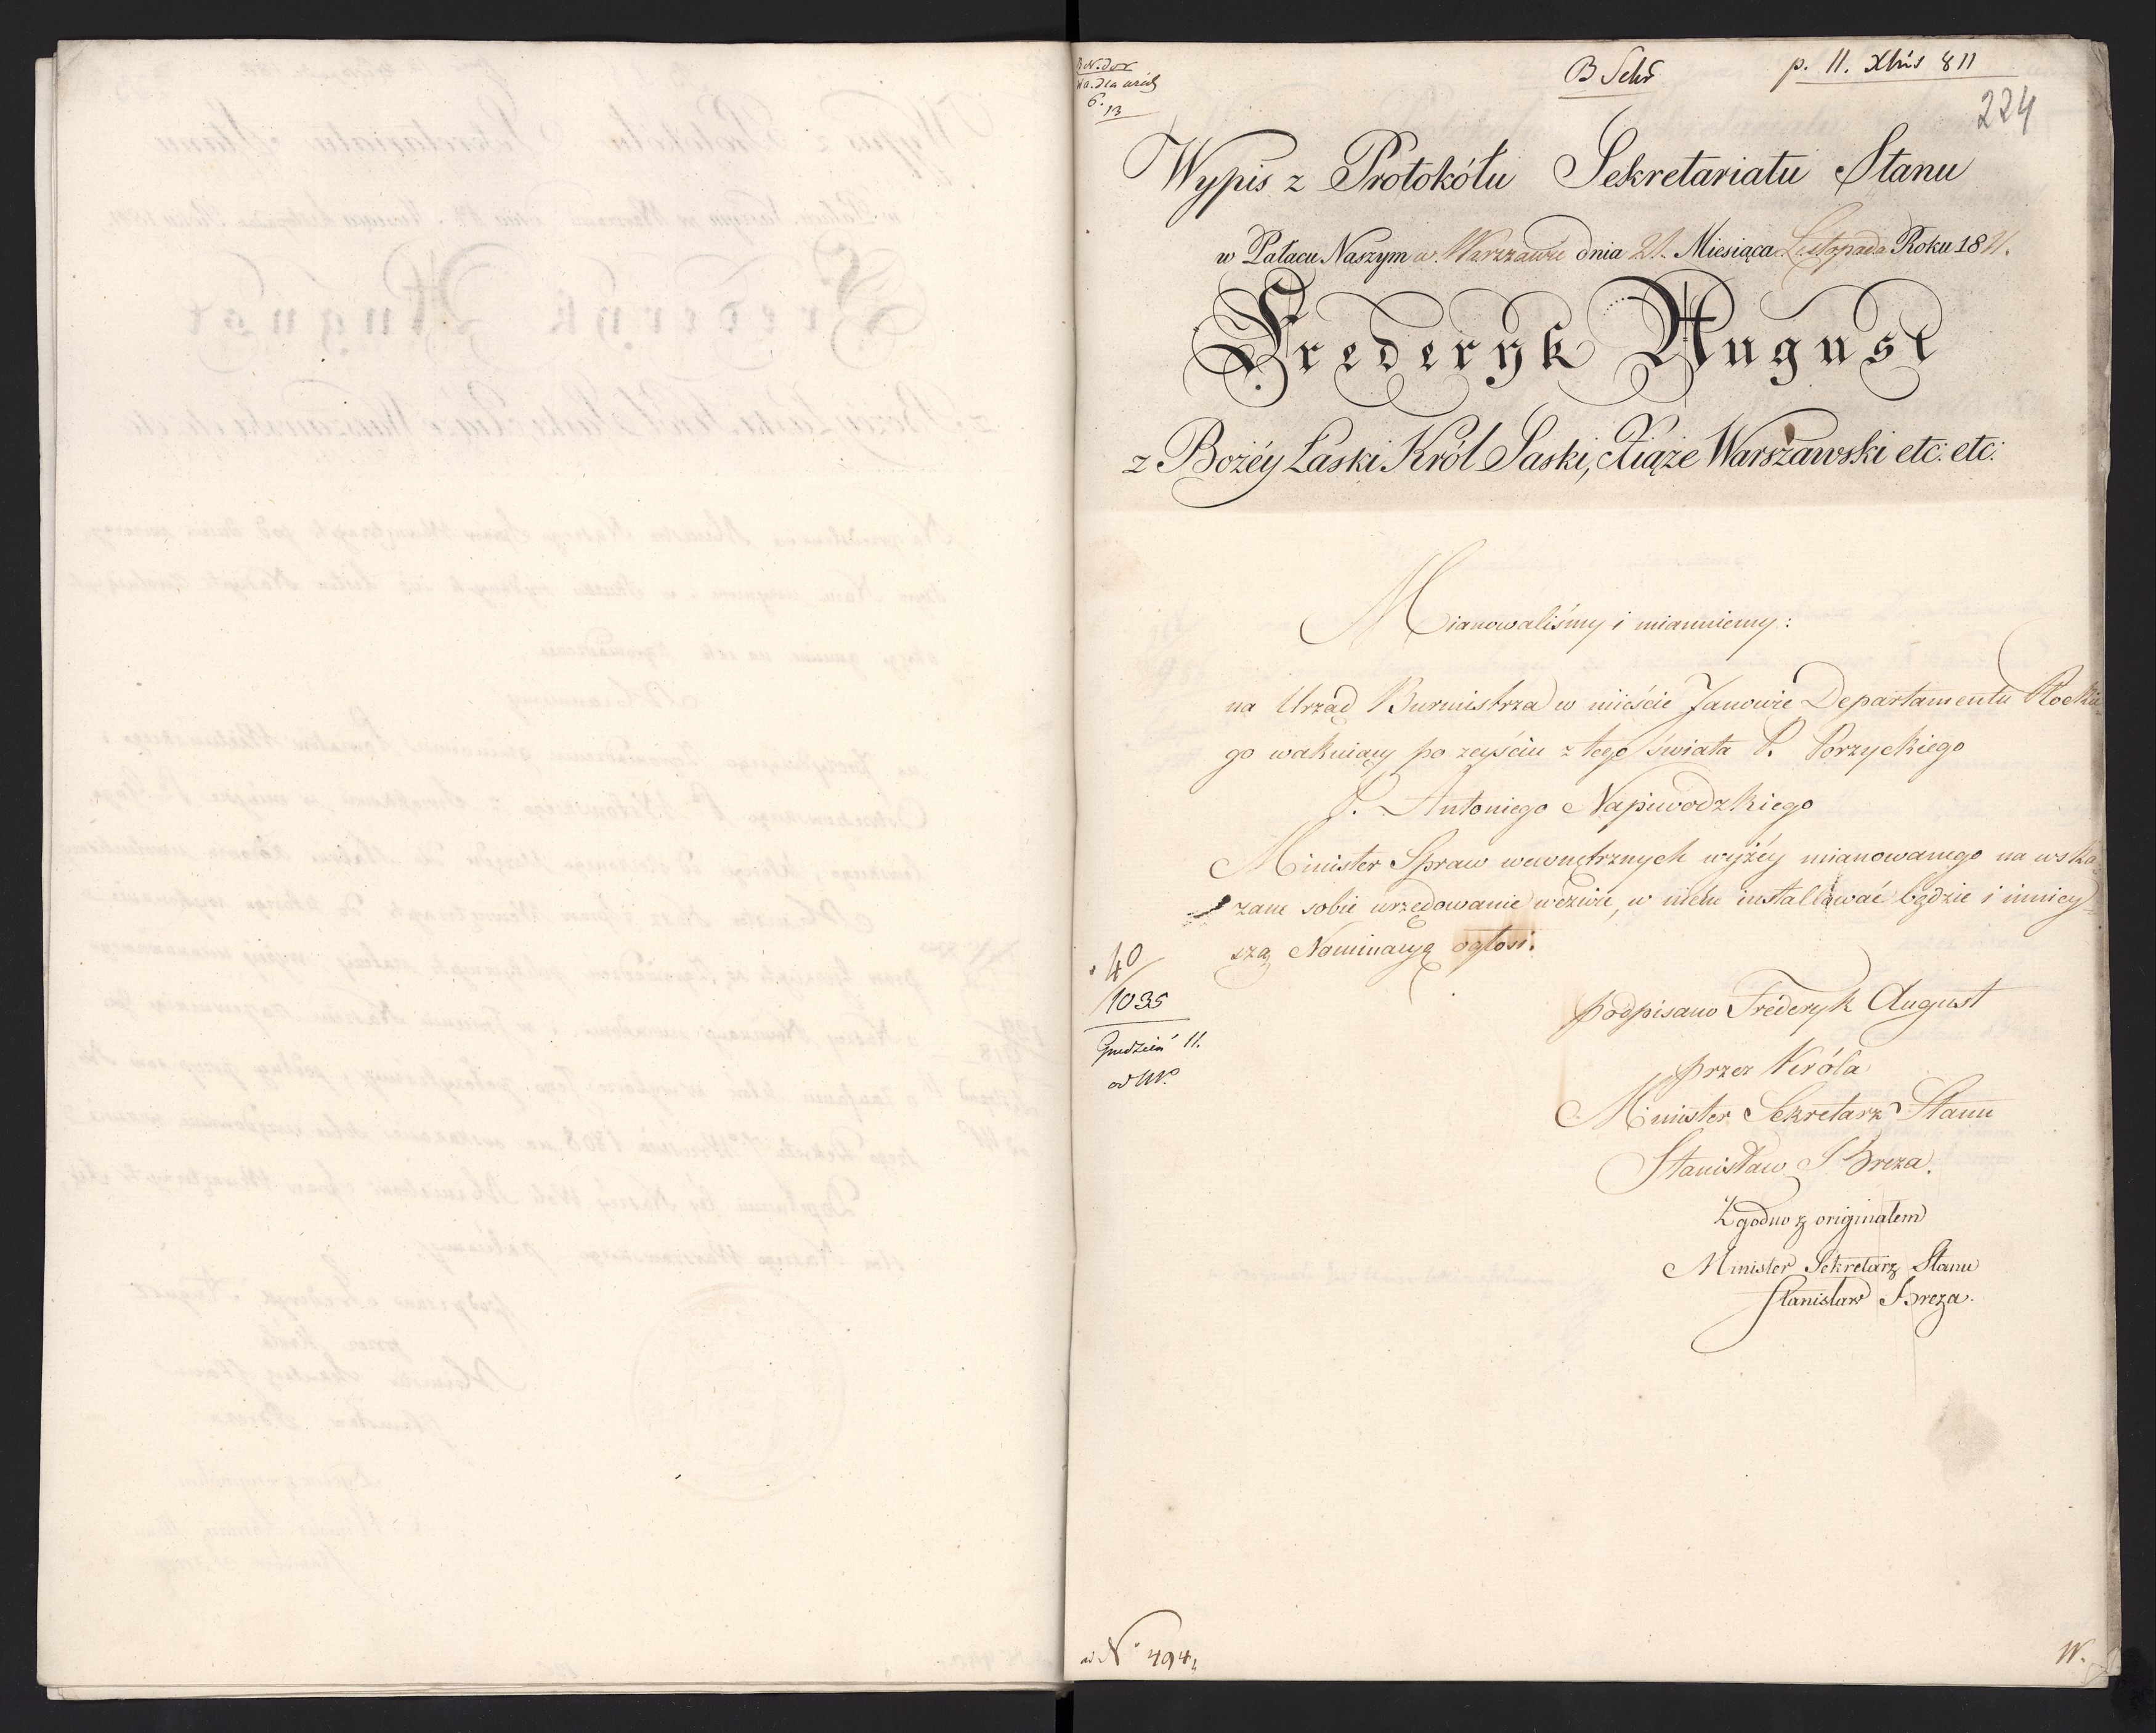 B Sekr
p. 11. Xbris 811
224
6.
13
Wypis z Protokółu Sekretariatu Stanu
w Pałacu Naszym w Warszawie dnia 21. Miesiąca Listopada Roku 1811.
Frederyk August
z Bożéy Łaski Król Saski, Xiąże Warszawski etc: etc:
Mianowaliśmy i mianuiemy:
na Urząd Burmistrza w mieście Janowie Departamentu Płockie-
go wakuiący po zeyściu z tego świata P. Porzyckiego
P. Antoniego Napiwodzkiego
Minister Spraw wewnętrznych wyżéy mianowanego na wska-
zane sobie urzędowanie wezwie, w niém installować będzie i niniey-
szą Nominacyą ogłosi.
40
1035
Grudzień 11.
podpisano Fréderyk August
przez Króla
Minister Sekretarz Stanu
Stanisław Breza.
Zgodno z originałem
Minister Sekretarz Stanu
Stanisław Breza.
ad N° 494
W.